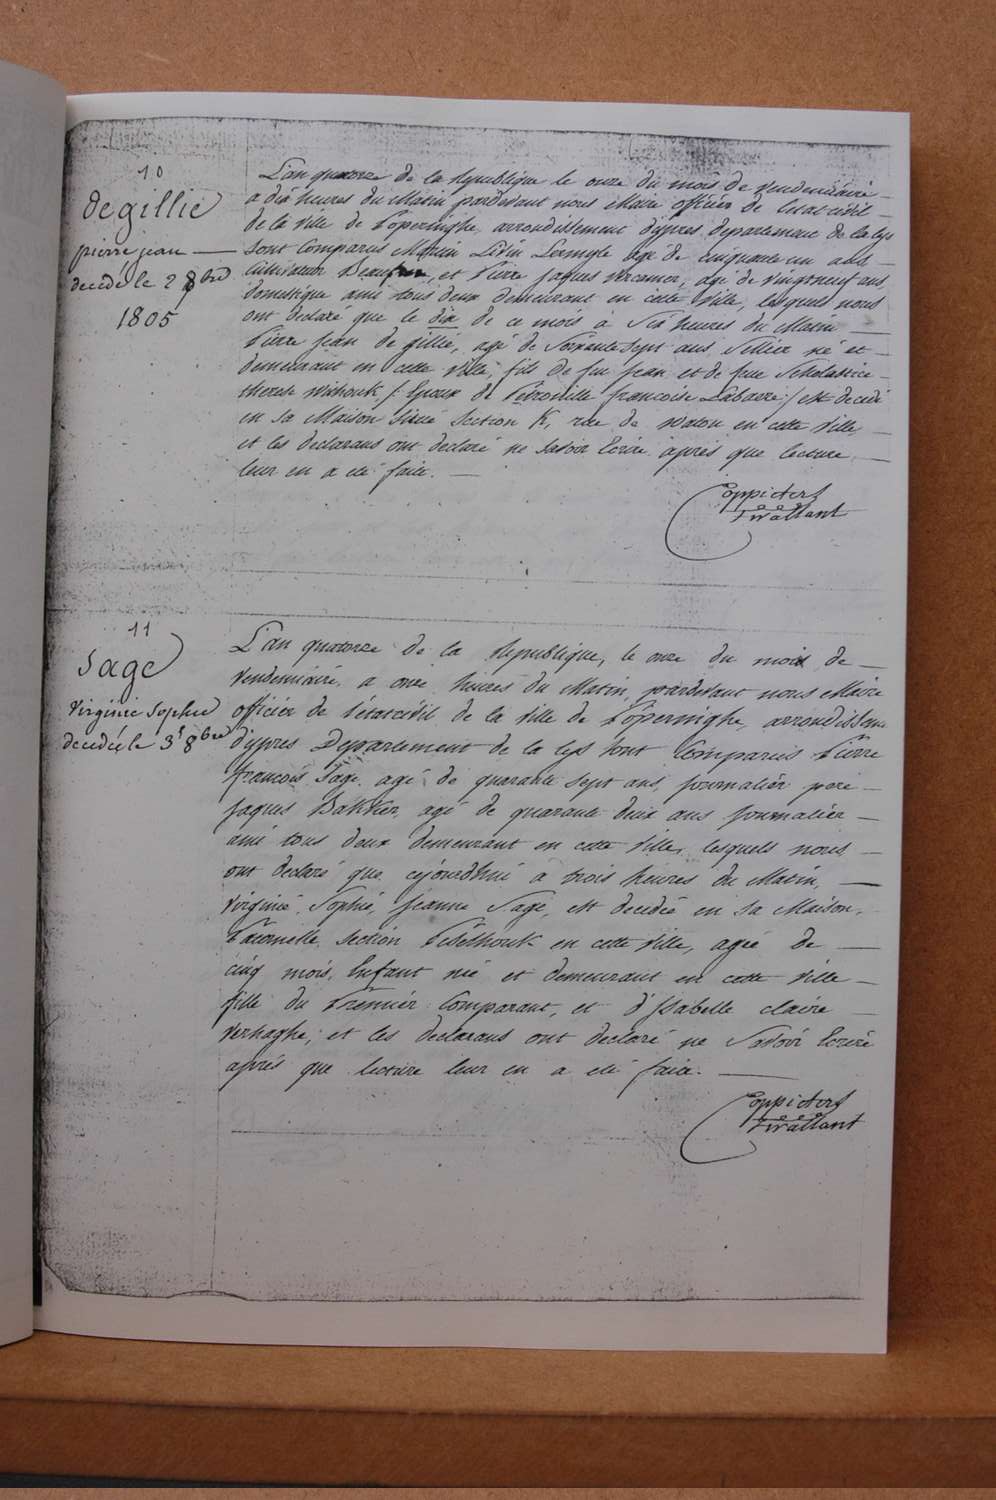 10
degillie
pierre jean
decédé le 2 8bre
1805
L'an quatorze de la republique le onze du mois de vendemiaire
a dix heures du Matin pardevant nous Maire officier de l'etat civil
de la ville de Poperinghe, arrondissement d'ypres departement de la lys
sont Comparus Martin Livin age de cinquante un ans
Cultivateur et Pierre Jaques Vercamer, agé de vingtneuf ans,
domestique ami tous deux demeurant en cette ville, lesquels nous
ont declaré que le dix de ce mois à Six heures du Matin
Pierre Jean de gillié, agé de Soixante Sept ans, Sellier né et
demeurant en cette ville, fils de feu Jean et de feue Scholastice
therese / Epoux de Petronille francoise Labaere / est decedé
en sa Maison Sisue Section K, rue de watou en cette ville
et les declarans ont declaré ne savoir Ecrire après que lecture
leur en a été faite.
Coppieters
Tivallant
11
Sage
Virginie Sophie
decedée le 3r 8bre
L'an quatorze de la Republique, le onze du mois de
vendemiaire, a onze heures du Matin, pardevant nous Maire
officier de l'état civil de la ville de Poperinghe, arrondissem
d'ypres Departement de la lys sont Comparus Pierre
francois Sage, agé de quarante sept ans, journalier pere
Jaques Bakker, agé de quarante deux ans journalier
ami tous deux demeurant en cette ville, lesquels nous
ont declaré que cejourdhui à trois heures du Matin,
Virginie, Sophie, Jeanne Sage, est decedée en sa Maison,
Paternelle, section en cette ville, agée de
cinq mois, Enfant née et demeurant en cette ville
fille du Premier Comparant, et d'Isabelle claire
Verhaghe; et les declarans ont declaré ne Savoir Ecrire
après que lecture leur en a été faite.
Coppieters
Tivallant